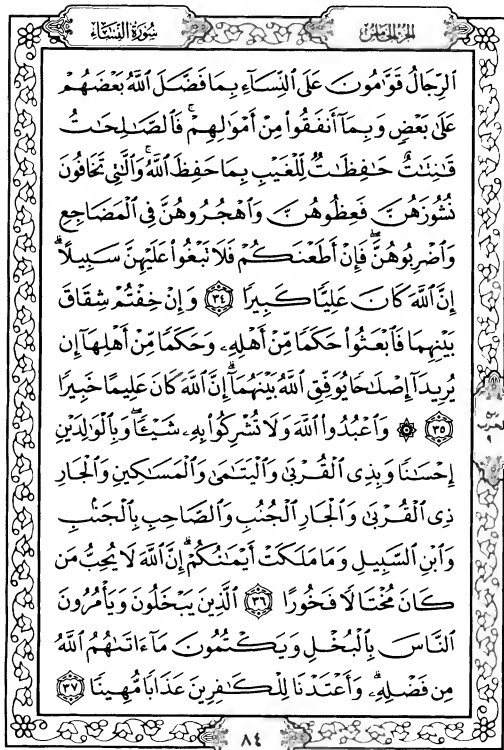 سُورَةُ النِّسَاءِ
الجزء الخامس
الرِّجَالُ قَوَّامُونَ عَلَى النِّسَاءِ بِمَا فَضَّلَ اللَّهُ بَعْضَهُمْ
عَلَىٰ بَعْضٍ وَبِمَا أَنفَقُوا مِنْ أَمْوَالِهِمْ ۚ فَالصَّالِحَاتُ
قَانِتَاتٌ حَافِظَاتٌ لِّلْغَيْبِ بِمَا حَفِظَ اللَّهُ ۚ وَالَّاتِي تَخَافُونَ
نُشُوزَهُنَّ فَعِظُوهُنَّ وَاهْجُرُوهُنَّ فِي الْمَضَاجِعِ
وَاضْرِبُوهُنَّ ۖ فَإِنْ أَطَعْنَكُمْ فَلَا تَبْغُوا عَلَيْهِنَّ سَبِيلًا ۗ
إِنَّ اللَّهَ كَانَ عَلِيًّا كَبِيرًا ٣٤ وَإِنْ خِفْتُمْ شِقَاقَ
بَيْنِهِمَا فَابْعَثُوا حَكَمًا مِّنْ أَهْلِهِ وَحَكَمًا مِّنْ أَهْلِهَا إِن
يُرِيدَا إِصْلَاحًا يُوَفِّقِ اللَّهُ بَيْنَهُمَا ۗ إِنَّ اللَّهَ كَانَ عَلِيمًا خَبِيرًا
٣٥ ۞ وَاعْبُدُوا اللَّهَ وَلَا تُشْرِكُوا بِهِ شَيْئًا ۖ وَبِالْوَالِدَيْنِ
إِحْسَانًا وَبِذِي الْقُرْبَىٰ وَالْيَتَامَىٰ وَالْمَسَاكِينِ وَالْجَارِ
ذِي الْقُرْبَىٰ وَالْجَارِ الْجُنُبِ وَالصَّاحِبِ بِالْجَنبِ
وَابْنِ السَّبِيلِ وَمَا مَلَكَتْ أَيْمَانُكُمْ ۗ إِنَّ اللَّهَ لَا يُحِبُّ مَن
كَانَ مُخْتَالًا فَخُورًا ٣٦ الَّذِينَ يَبْخَلُونَ وَيَأْمُرُونَ
النَّاسَ بِالْبُخْلِ وَيَكْتُمُونَ مَا آتَاهُمُ اللَّهُ
مِن فَضْلِهِ ۗ وَأَعْتَدْنَا لِلْكَافِرِينَ عَذَابًا مُّهِينًا ٣٧
٨٤